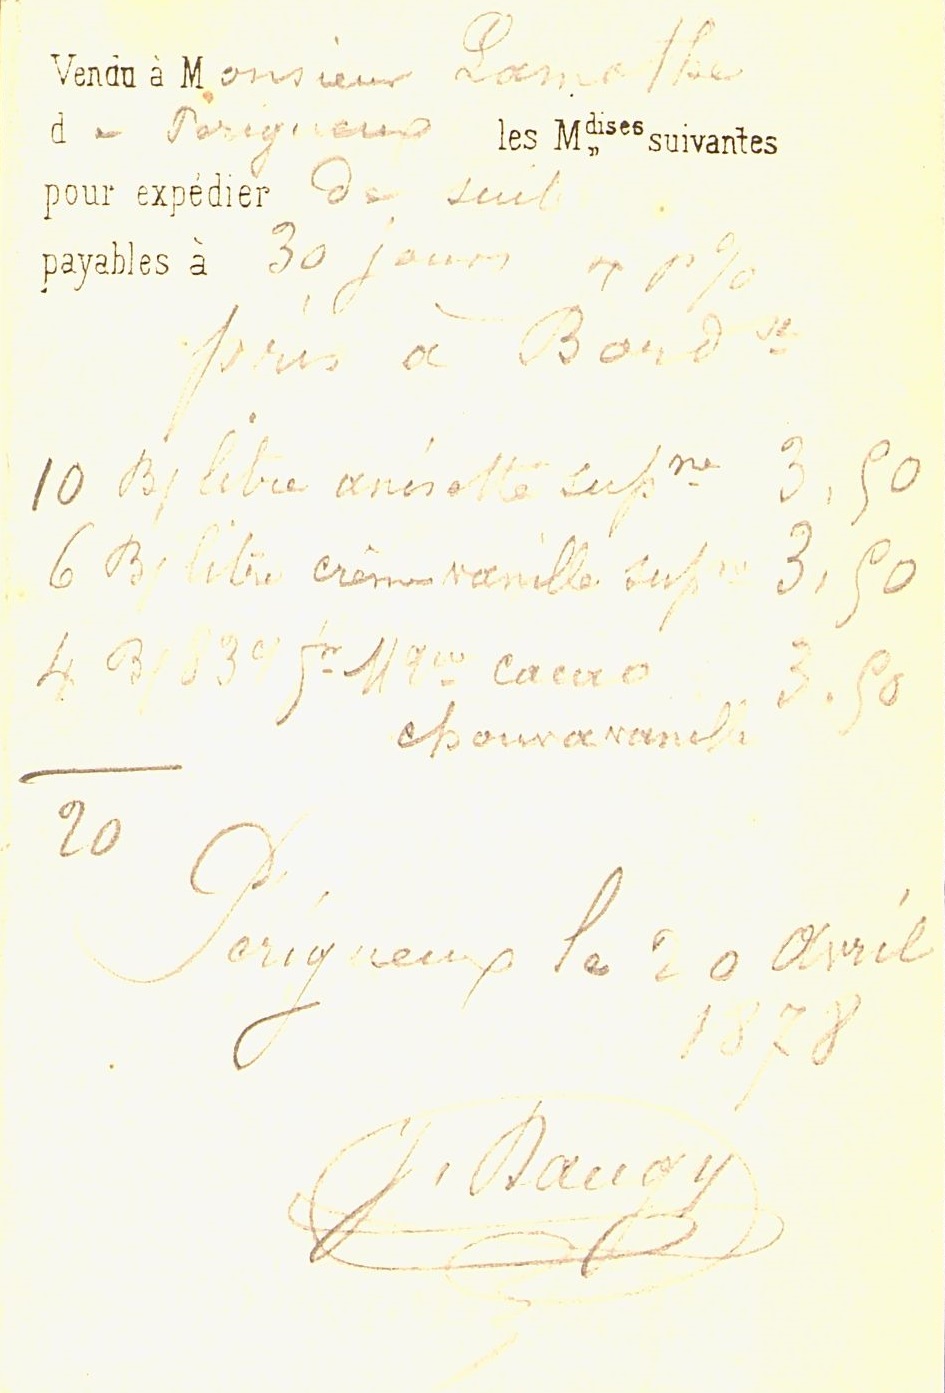 Vendu à Monsieur Lamothe
de Périgueux les Mdises suivantes
pour expédier de suite
payables à 30 jours
pris à Bordx
10 B/ litre anisette supne 3,50
6 B/ litre crême vanille supne 3,50
4 B/ cacao 3.50
chouva vanille
20
Périgueux le 20 Avril
1878
J. Baugy